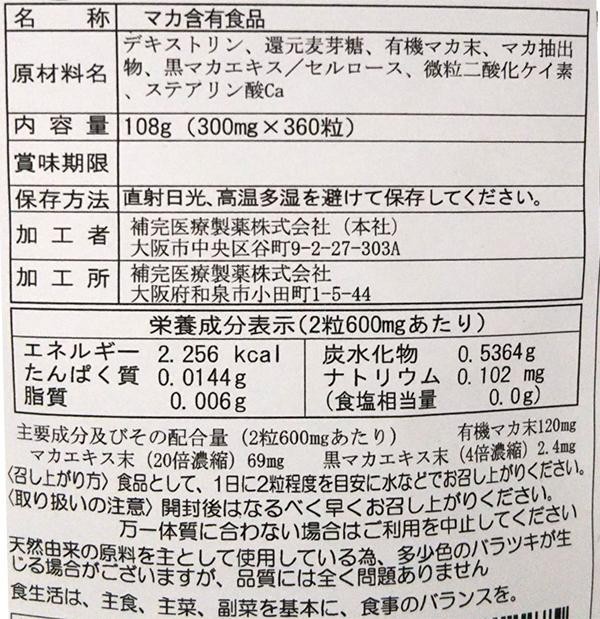 名称 マカ含有食品
原材料名 デキストリン、還元麦芽糖、有機マカ末、マカ抽出
物、黒マカエキス／セルロース、微粒二酸化ケイ素
、ステアリン酸Ca
内容量 108g（300mg×360粒）
賞味期限
保存方法 直射日光、高温多湿を避けて保存してください。
加工者 補完医療製薬株式会社（本社）
大阪市中央区谷町9-2-27-303A
加工所 補完医療製薬株式会社
大阪府和泉市小田町1-5-44
栄養成分表示（2粒600mgあたり）
エネルギー 2.256 kcal 炭水化物 0.5364g
たんぱく質 0.0144g ナトリウム 0.102 mg
脂質 0.006g （食塩相当量 0.0g）
主要成分及びその配合量（2粒600mgあたり） 有機マカ末120mg
マカエキス末（20倍濃縮）69mg 黒マカエキス末（4倍濃縮）2.4mg
〈召し上がり方〉食品として、1日に2粒程度を目安に水などでお召し上がりください。
〈取り扱いの注意〉開封後はなるべく早くお召し上がりください。
万一体質に合わない場合はご利用を中止してください
天然由来の原料を主として使用している為、多少色のバラツキが生
じる場合がございますが、品質には全く問題ありません
食生活は、主食、主菜、副菜を基本に、食事のバランスを。